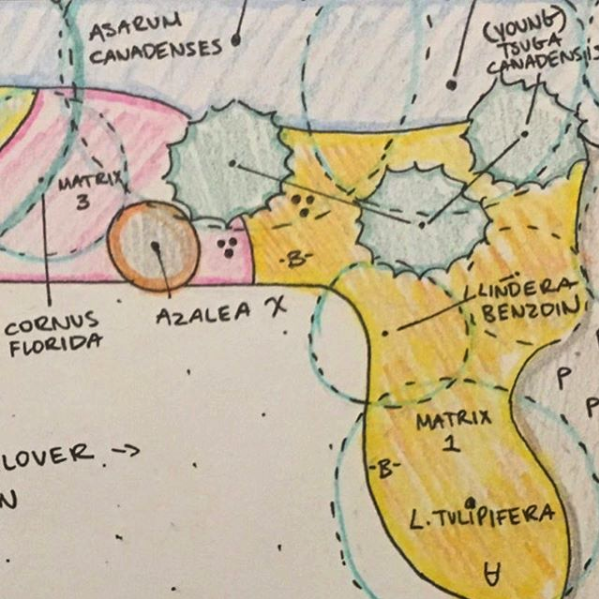 ASARUM
CANADENSES
(YOUNG)
TSUGA
CANADENSIS
MATRIX
3
-B-
CORNUS
FLORIDA
AZALEA X
LINDERA
BENZOIN
P
P
LOVER →
N
MATRIX
1
-B-
L. TULIPIFERA
A